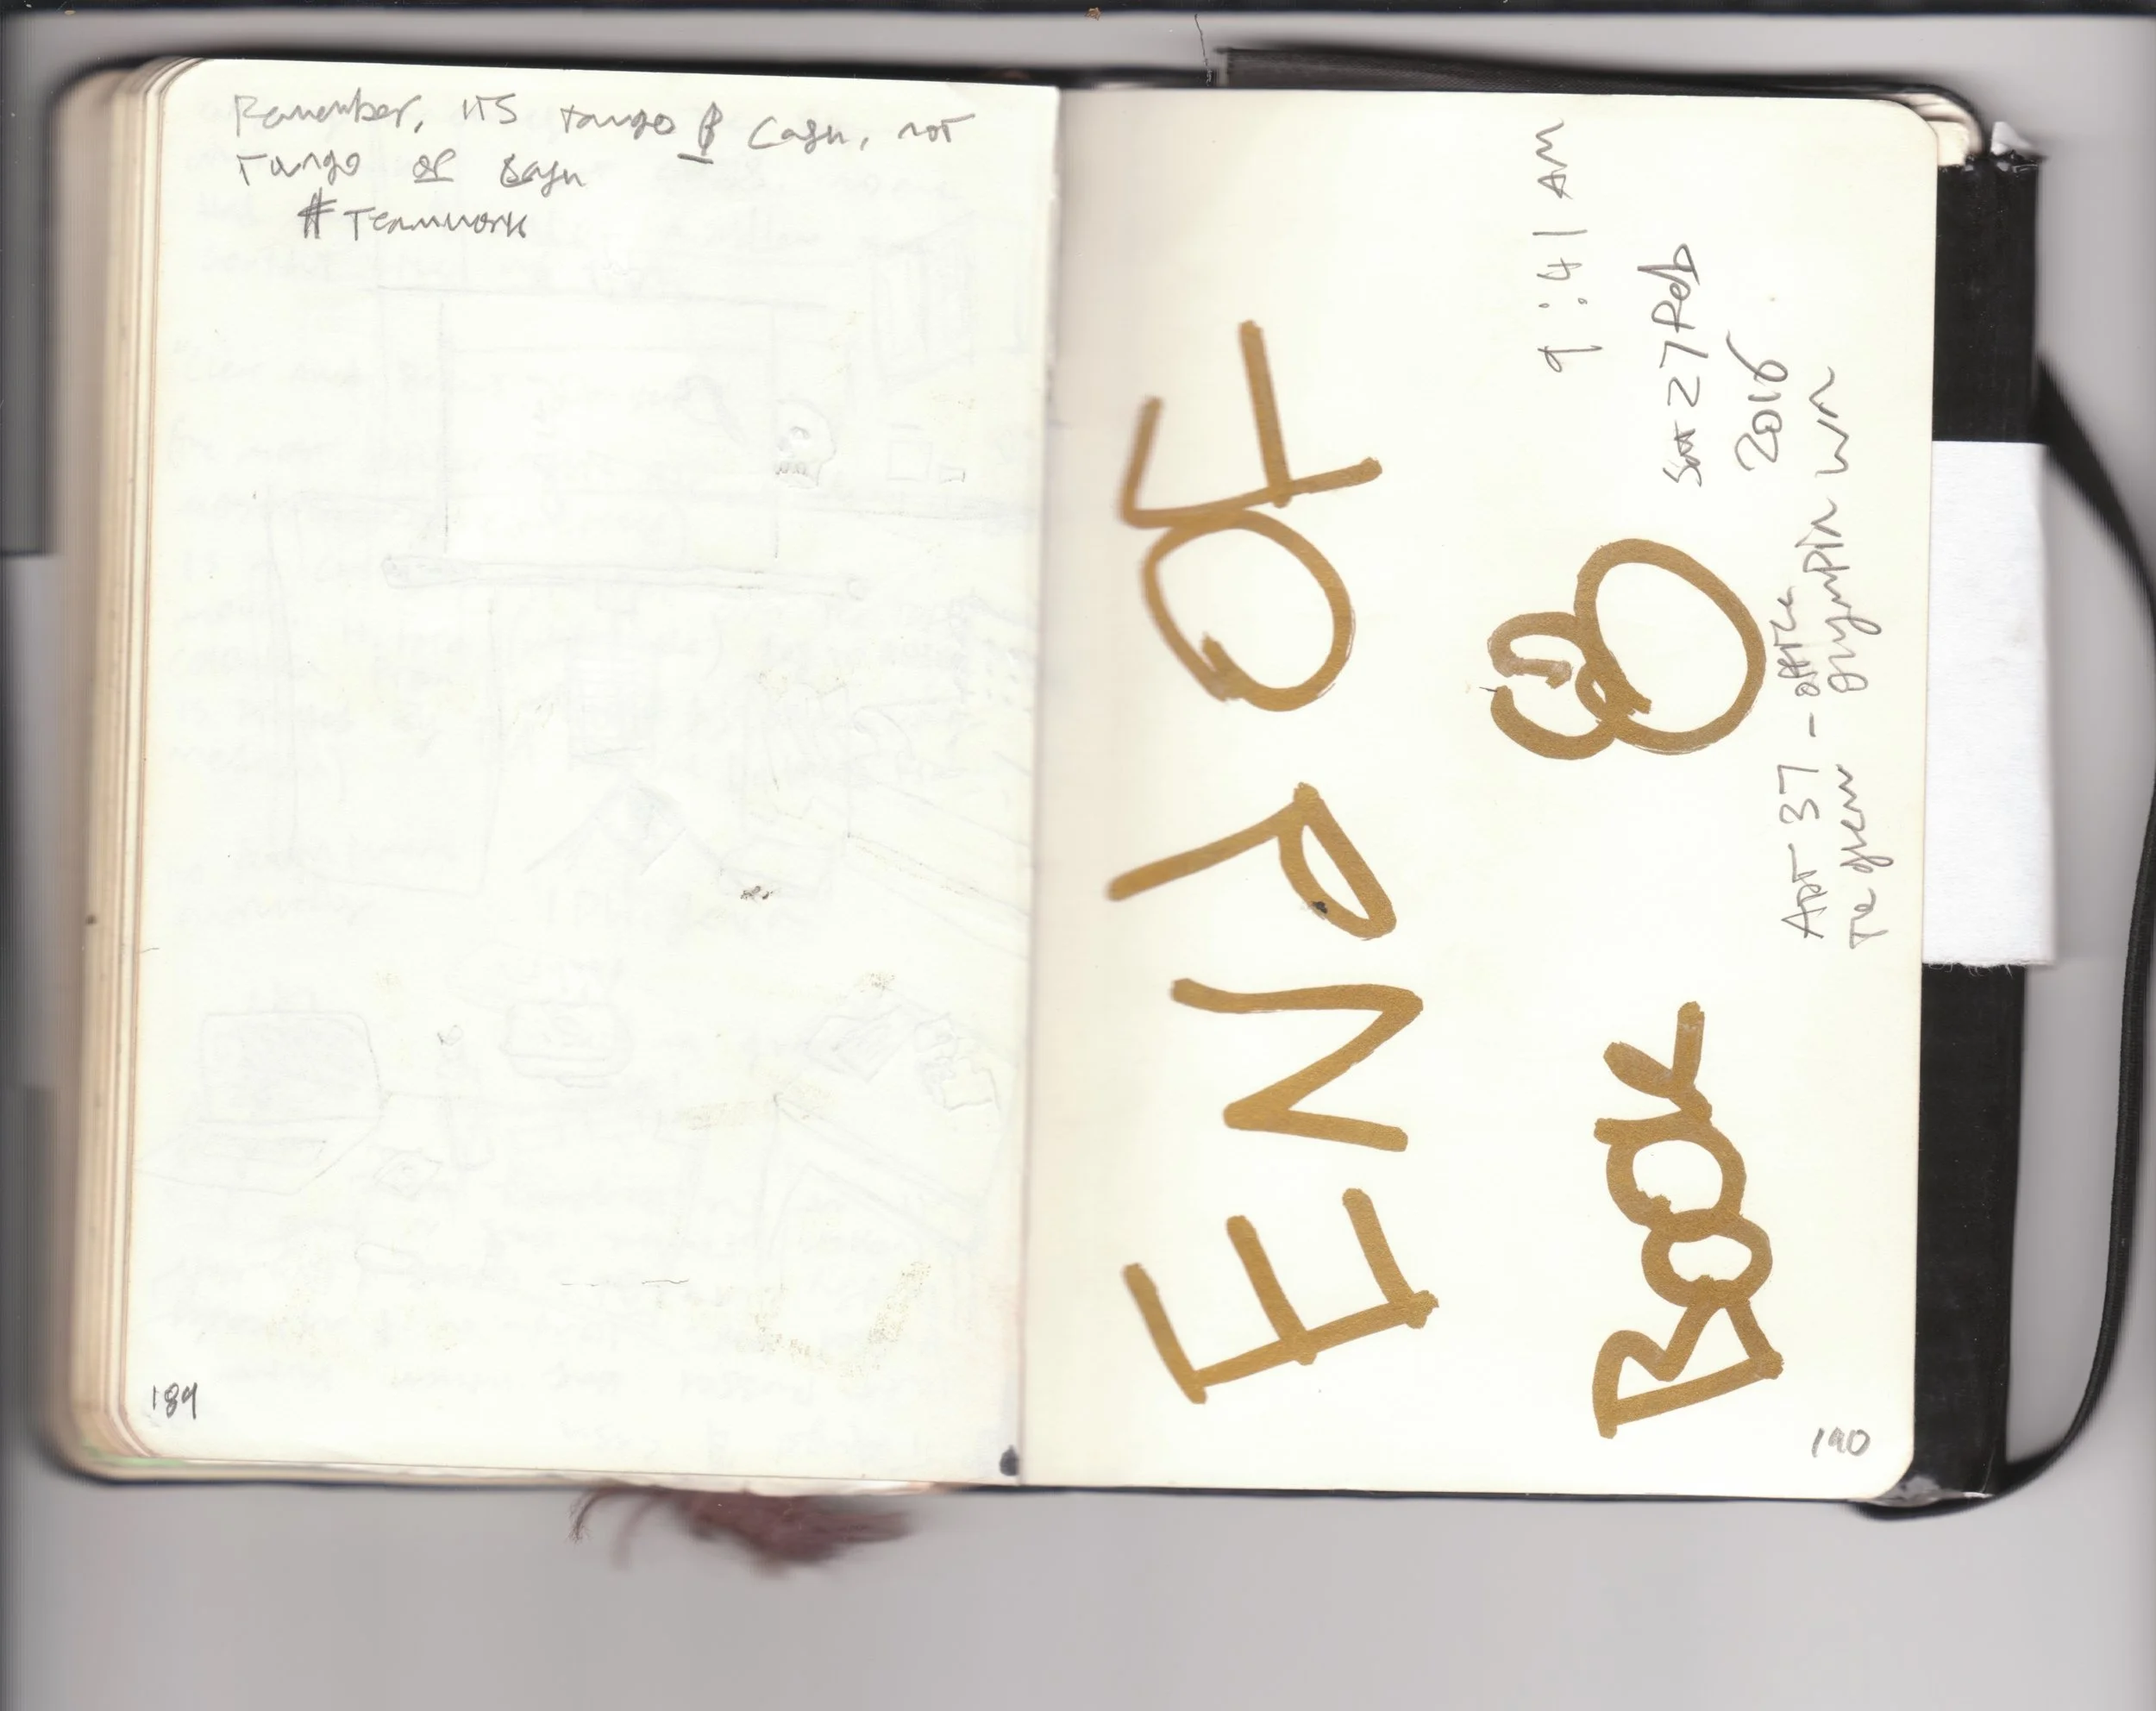 Remember, ITS tango & Cash, not
Tango or Cash
#Teamwork
189
END OF
BOOK
9:41 AM
Sat 27 Feb
2016
Apt 37 - office
The green Olympia
190